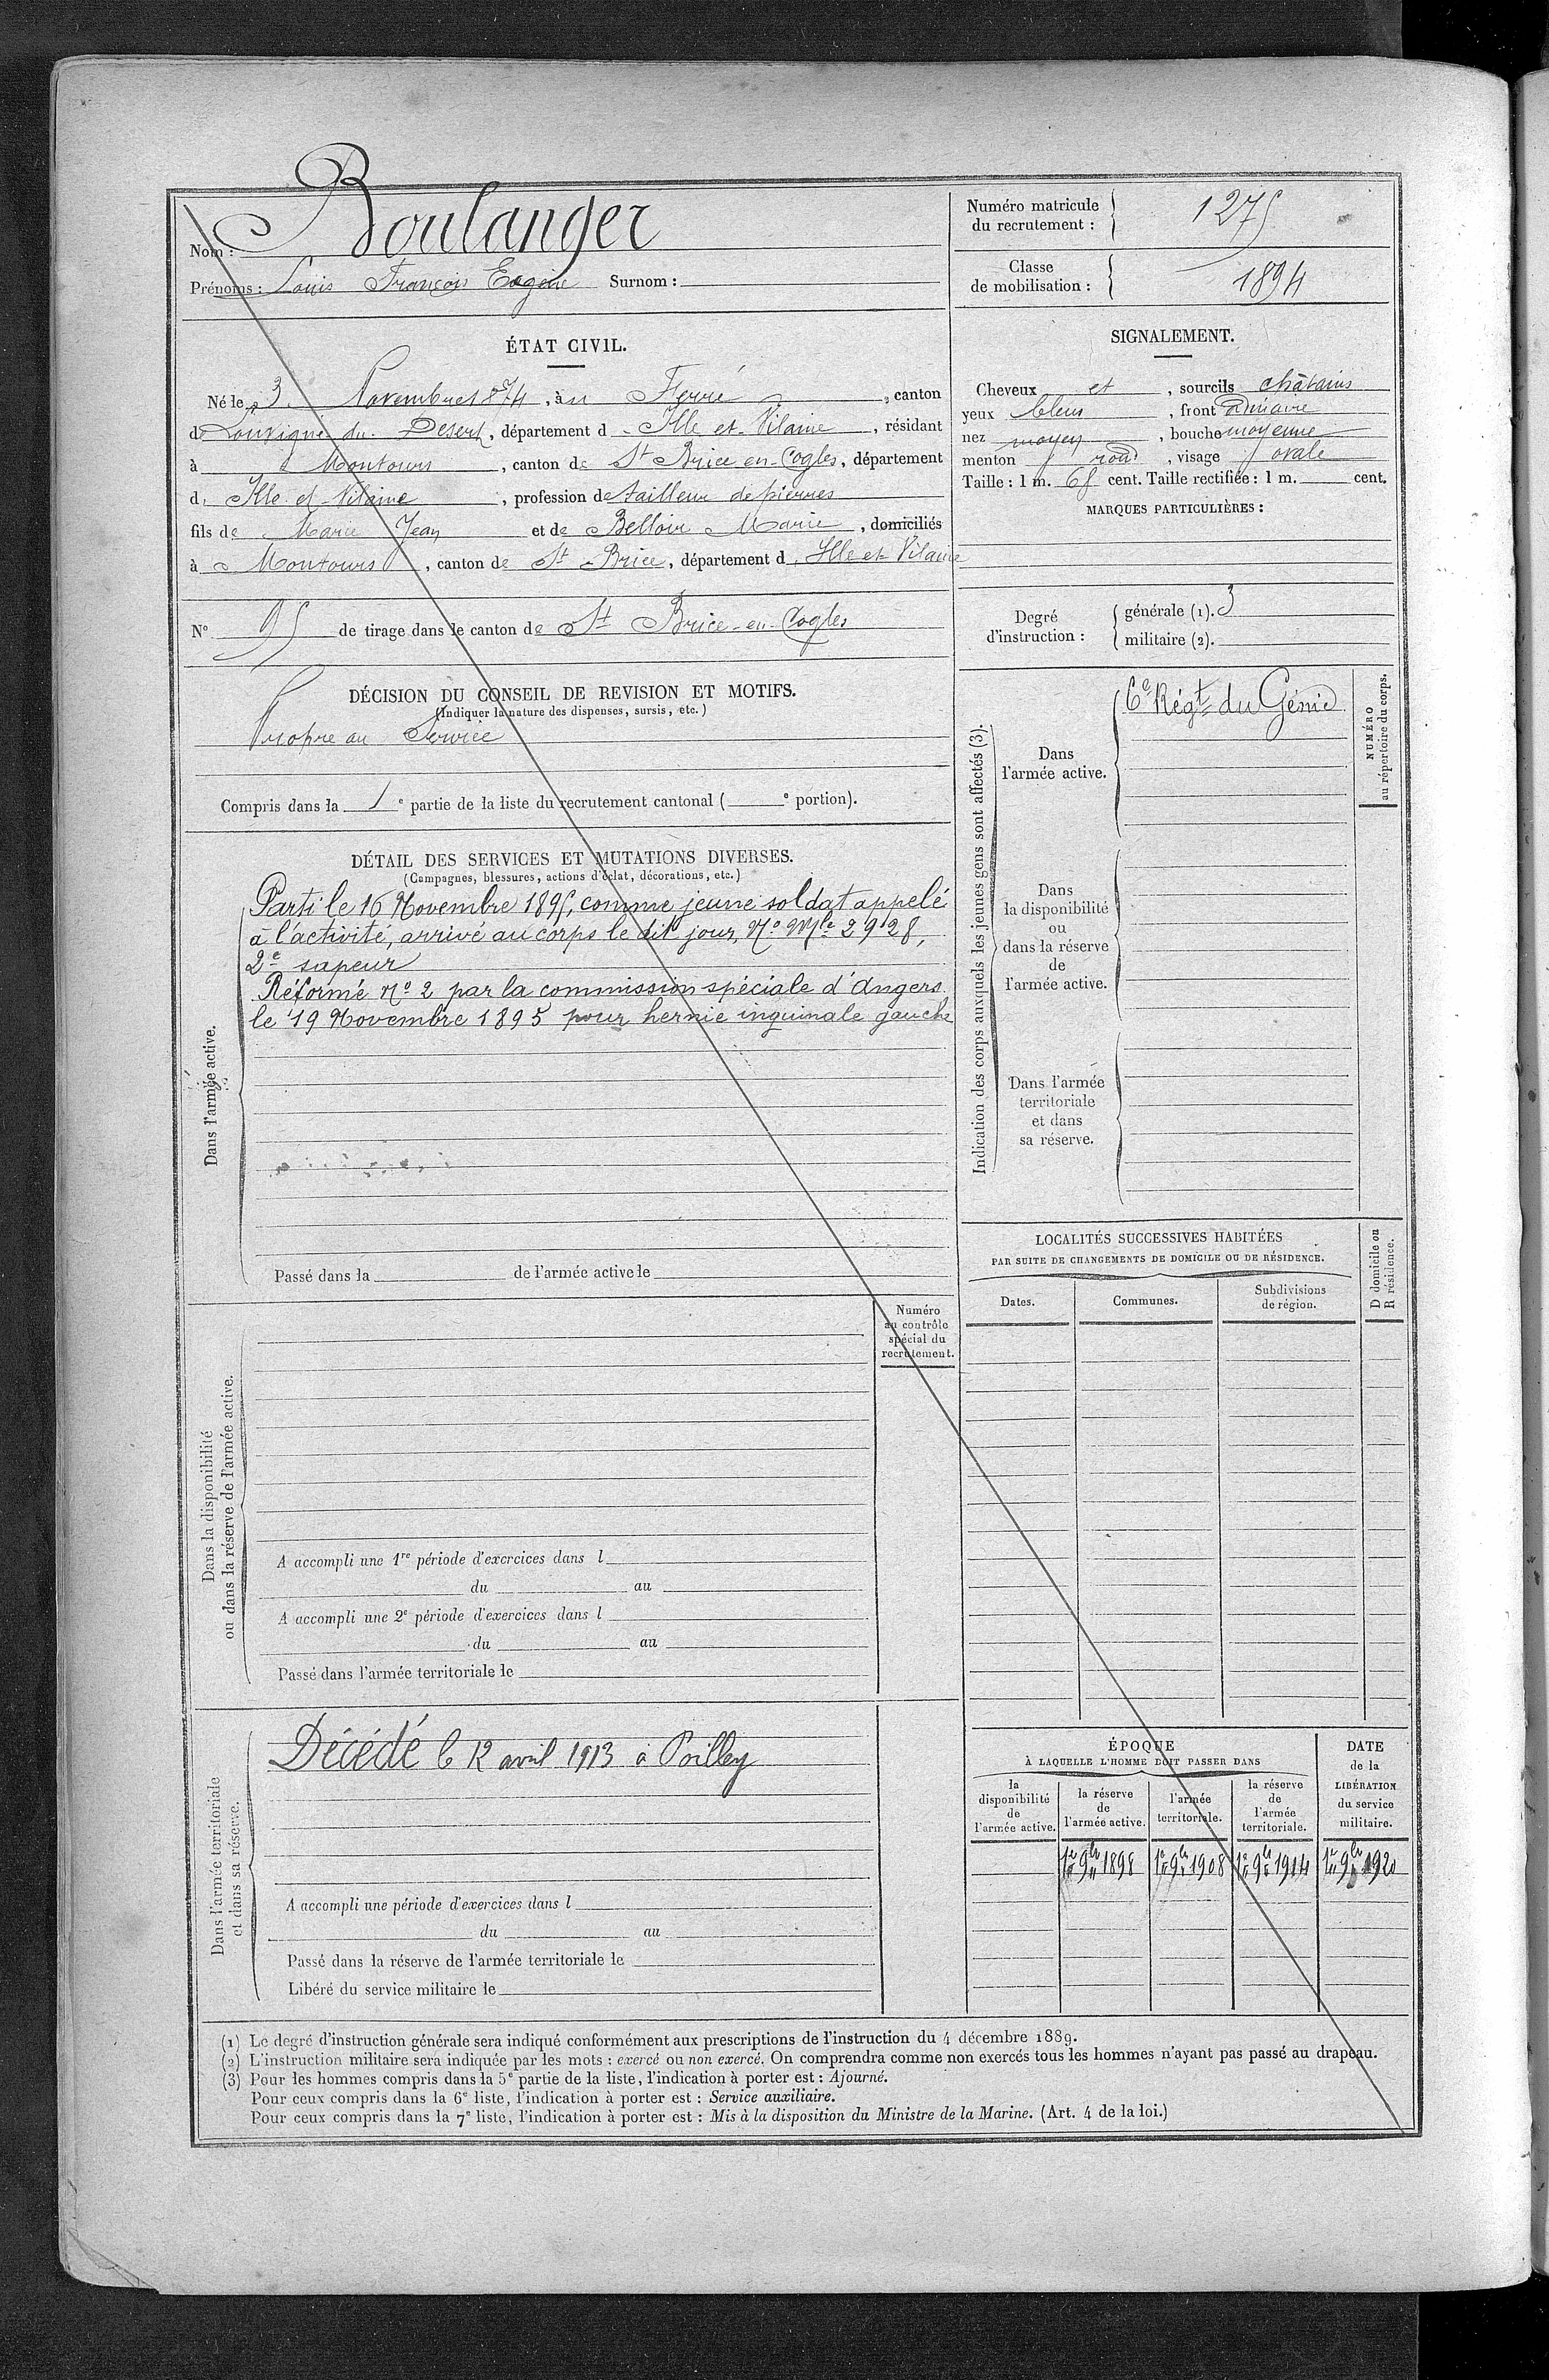 Nom : Boulanger
Prénoms : Louis François Eugène Surnom :
Numéro matricule du recrutement : 1275
Classe de mobilisation : 1894
ÉTAT CIVIL.
Né le 3 Novembre 1874, à u Ferré, canton
d Louvigné du Désert, département d Ille et Vilaine, résidant
à Montours, canton de St Brice en Cogles, département
d Ille et Vilaine, profession de tailleur de pierres
fils de Marie Jean et de Belloir Marie, domiciliés
à Montours, canton de St Brice, département d Ille et Vilaine
N° 95 de tirage dans le canton de St Brice-en-Cogles
SIGNALEMENT.
Cheveux et, sourcils châtains
yeux bleus, front
nez moyen, bouche moyenne
menton rond, visage ovale
Taille : 1 m. 68 cent. Taille rectifiée : 1 m. cent.
MARQUES PARTICULIÈRES :
Degré d'instruction : générale (1). 3
militaire (2).
DÉCISION DU CONSEIL DE REVISION ET MOTIFS.
(Indiquer la nature des dispenses, sursis, etc.)
Propre au Service
Compris dans la 1e partie de la liste du recrutement cantonal ( e portion).
DÉTAIL DES SERVICES ET MUTATIONS DIVERSES.
(Campagnes, blessures, actions d'éclat, décorations, etc.)
Dans l'armée active.
Parti le 16 Novembre 1895, comme jeune soldat appelé
à l'activité, arrivé au corps le dit jour, No Mle 2928,
2e sapeur
Réformé No 2 par la commission spéciale d'Angers
le 19 Novembre 1895 pour hernie inguinale gauche
Passé dans la de l'armée active le
Indication des corps auxquels les jeunes gens sont affectés (3).
Dans l'armée active.
6e Régt du Génie
NUMÉRO au répertoire du corps.
Dans la disponibilité ou dans la réserve de l'armée active.
Dans l'armée territoriale et dans sa réserve.
LOCALITÉS SUCCESSIVES HABITÉES
PAR SUITE DE CHANGEMENTS DE DOMICILE OU DE RÉSIDENCE.
Dates. Communes. Subdivisions de région.
D domicile ou R résidence.
Dans la disponibilité ou dans la réserve de l'armée active.
Numéro au contrôle spécial du recrutement.
A accompli une 1re période d'exercices dans l
du au
A accompli une 2e période d'exercices dans l
du au
Passé dans l'armée territoriale le
Dans l'armée territoriale et dans sa réserve.
Décédé le 12 avril 1913 à Poilley
A accompli une période d'exercices dans l
du au
Passé dans la réserve de l'armée territoriale le
Libéré du service militaire le
ÉPOQUE
À LAQUELLE L'HOMME DOIT PASSER DANS
la disponibilité de l'armée active.
la réserve de l'armée active.
l'armée territoriale.
la réserve de l'armée territoriale.
DATE de la LIBÉRATION du service militaire.
1er 9bre 1898 1er 9bre 1908 1er 9bre 1914 1er 9bre 1920
(1) Le degré d'instruction générale sera indiqué conformément aux prescriptions de l'instruction du 4 décembre 1889.
(2) L'instruction militaire sera indiquée par les mots : exercé ou non exercé. On comprendra comme non exercés tous les hommes n'ayant pas passé au drapeau.
(3) Pour les hommes compris dans la 5e partie de la liste, l'indication à porter est : Ajourné.
Pour ceux compris dans la 6e liste, l'indication à porter est : Service auxiliaire.
Pour ceux compris dans la 7e liste, l'indication à porter est : Mis à la disposition du Ministre de la Marine. (Art. 4 de la loi.)